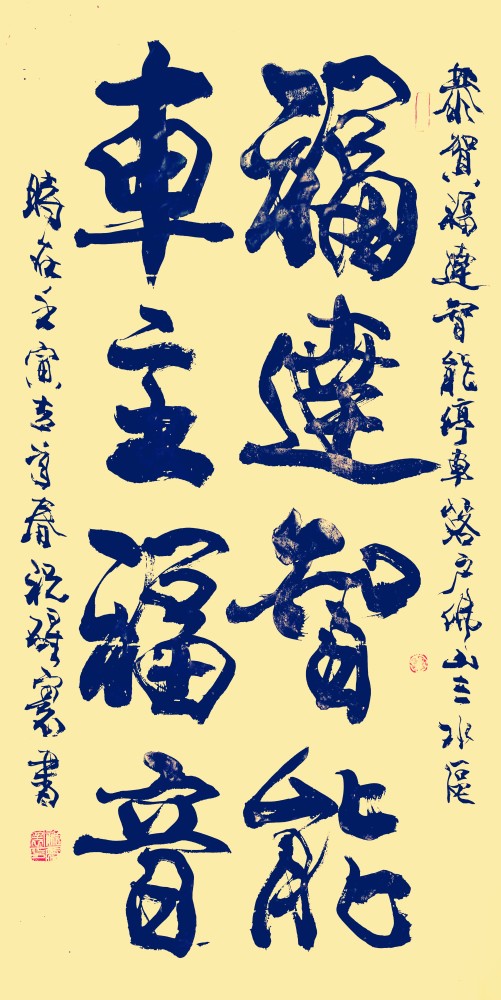 恭賀福達智能停車落户佛山三水區
福達智能
車主福音
時在壬寅吉等春祝
書